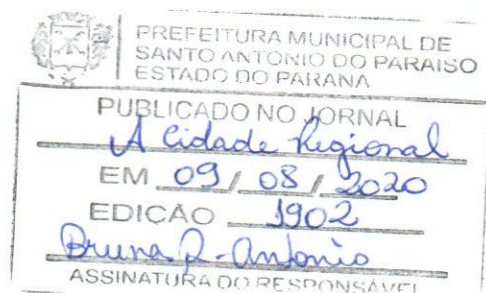 PREFEITURA MUNICIPAL DE
SANTO ANTONIO DO PARAISO
ESTADO DO PARANA
PUBLICADO NO JORNAL
A Cidade Regional
EM 09 / 08 / 2020
EDIÇÃO 1902
Bruna R. Antonio
ASSINATURA DO RESPONSÁVEL